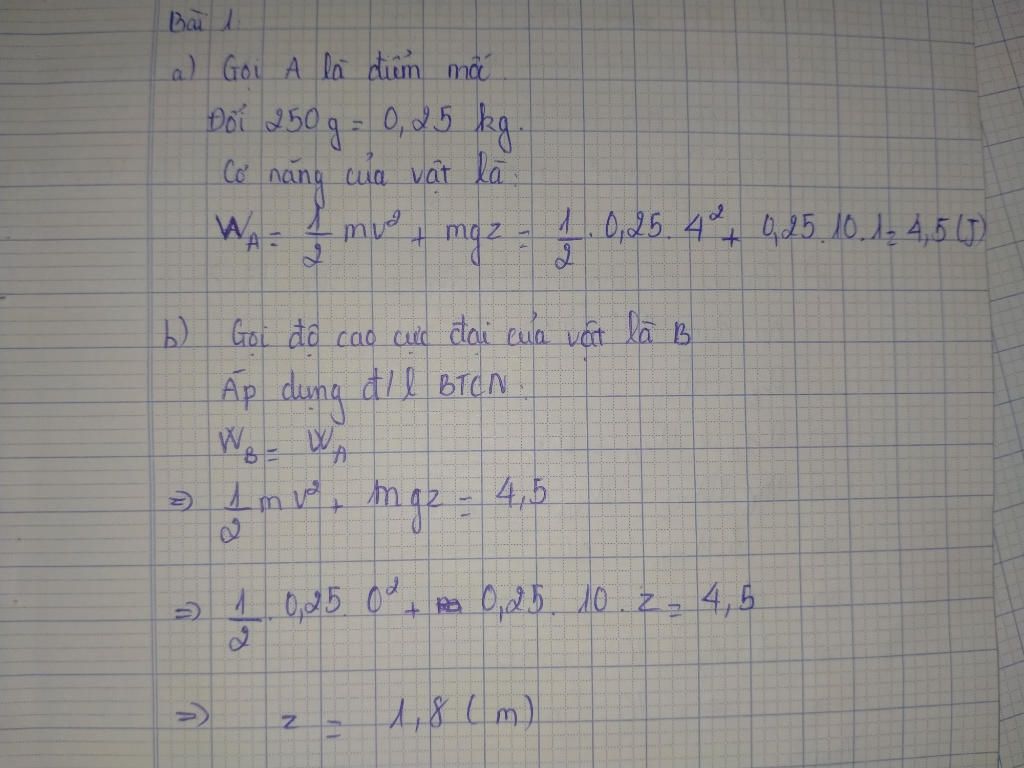 Bài 1
a) Gọi A là điểm mốc.
Đổi 250g = 0,25 kg.
Cơ năng của vật là:
W_A = 1/2 mv² + mgz = 1/2 . 0,25 . 4² + 0,25 . 10 . 1 = 4,5 (J)
b) Gọi độ cao cực đại của vật là B
Áp dụng đ/l BTCN:
W_B = W_A
=> 1/2 mv² + mgz = 4,5
=> 1/2 . 0,25 . 0² + 0,25 . 10 . z = 4,5
=> z = 1,8 (m)